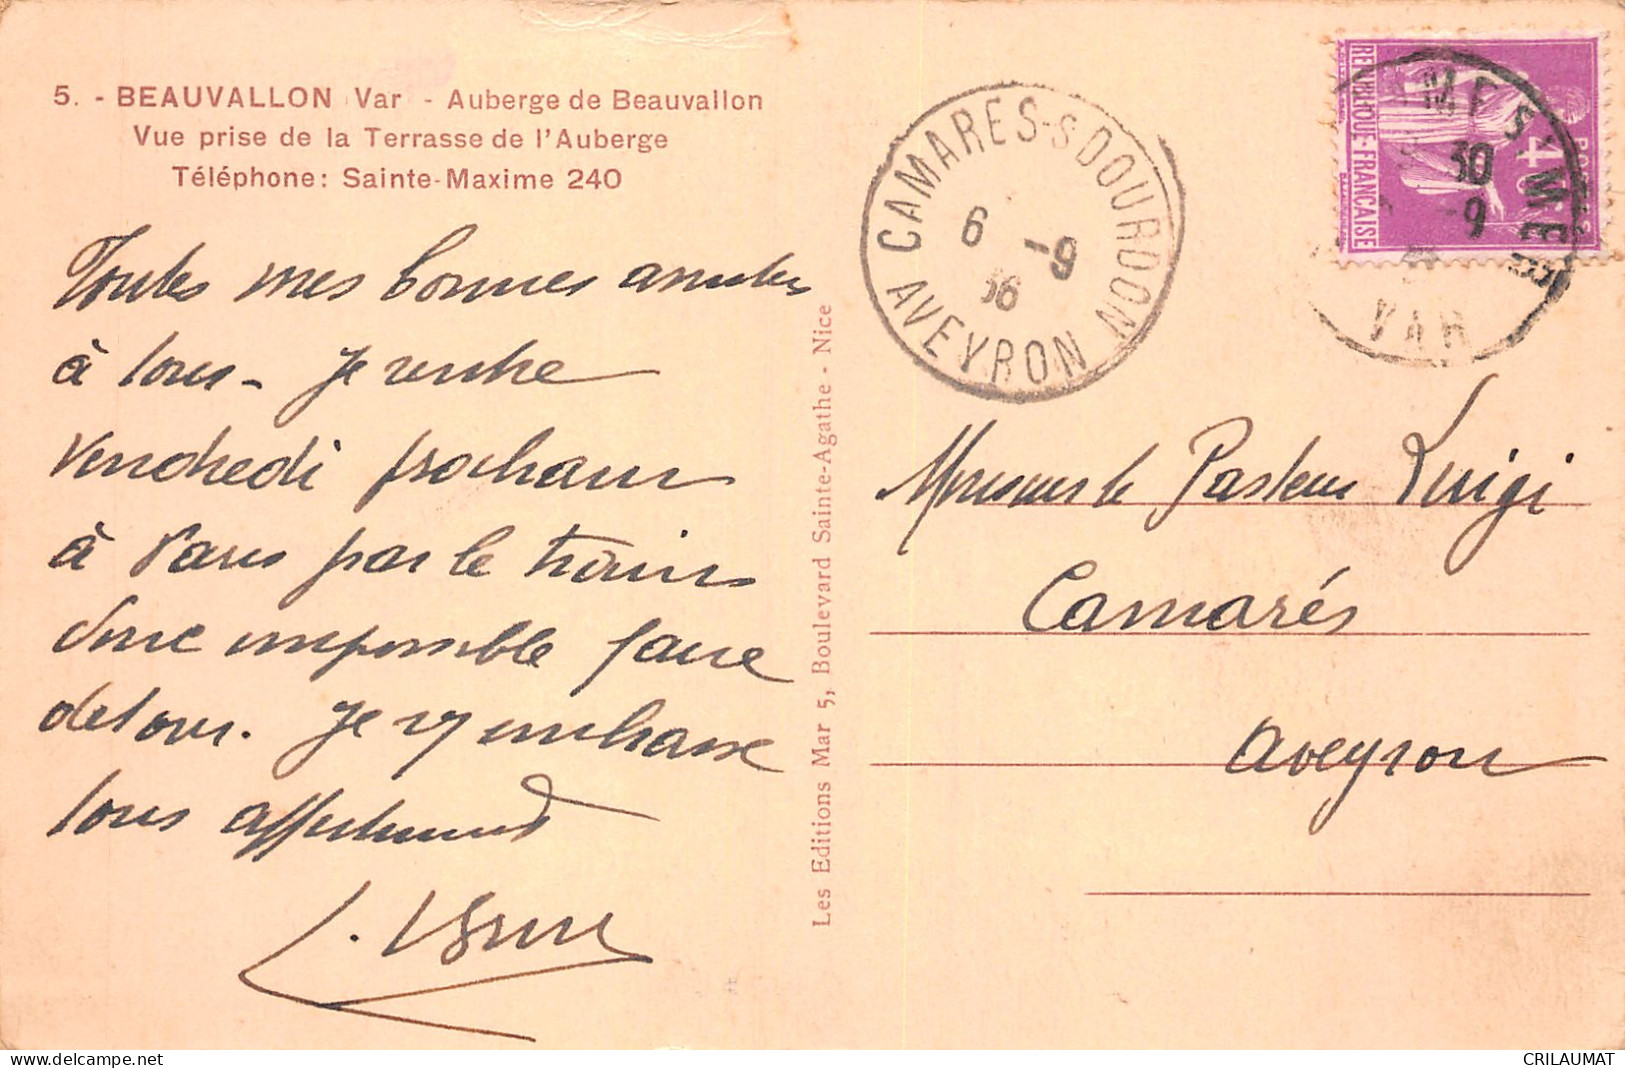 5. - BEAUVALLON (Var) - Auberge de Beauvallon
Vue prise de la Terrasse de l'Auberge
Téléphone: Sainte-Maxime 240
Toutes mes bonnes amitiés
à tous - Je rentre
Vendredi prochain
à Paris par le train
donc impossible faire
detour. Je vs embrasse
tous affectueusement
Les Editions Mar 5, Boulevard Sainte-Agathe - Nice
CAMARES-S-DOURDON
6 -9
36
AVEYRON
REPUBLIQUE-FRANCAISE
POSTES
40
30
-9
VAR
Monsieur le Pasteur Luigi
Camarés
Aveyron
www.delcampe.net
CRILAUMAT